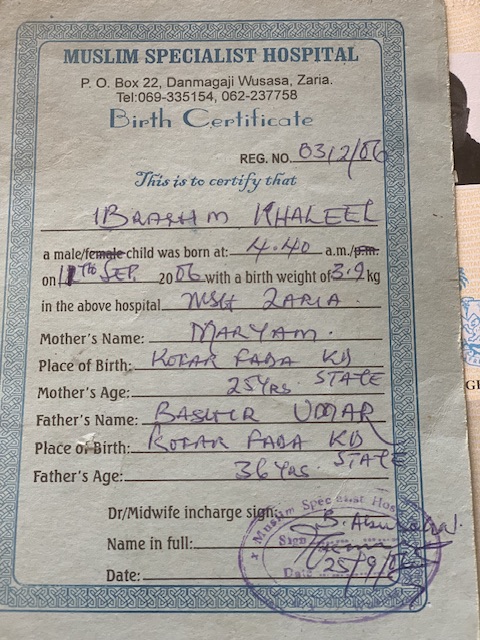 MUSLIM SPECIALIST HOSPITAL
P. O. Box 22, Danmagaji Wusasa, Zaria.
Tel:069-335154, 062-237758
Birth Certificate
REG. NO. 0312/06
This is to certify that
IBRAHIM KHALEEL
a male/female child was born at: 4.40 a.m./p.m.
on 11TH SEP 2006 with a birth weight of 3.9 kg
in the above hospital MSH ZARIA.
Mother's Name: MARYAM.
Place of Birth: KOFAR FADA KD STATE
Mother's Age: 25 Yrs.
Father's Name: BASHIR UMAR
Place of Birth: KOFAR FADA KD STATE
Father's Age: 36 Yrs.
Dr/Midwife incharge sign:
Name in full:
Date: 25/9/06
Muslim Specialist Hos
Sign
Date